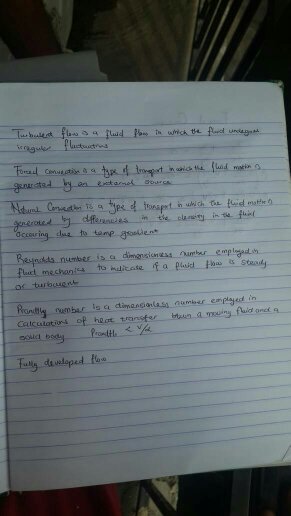 Turbulent flow is a fluid flow in which the fluid undergoes
irregular fluctuations
Forced convection is a type of transport in which the fluid motion is
generated by an external source
Natural Convection is a type of transport in which the fluid motion is
generated by differencies in the density in the fluid
occuring due to temp gradient
Reynolds number is a dimensionless number employed in
fluid mechanics to indicate if a fluid flow is steady
or turbulent
Prandtly number is a dimensionless number employed in
calculations of heat transfer btwn a moving fluid and a
solid body Prandtl
Fully developed flow